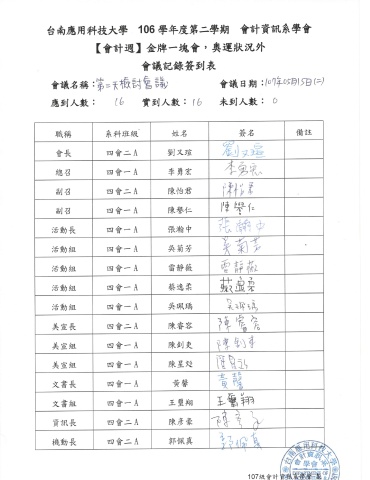 台南應用科技大學 106學年度第二學期 會計資訊系學會
【會計週】金牌一塊會，奧運狀況外
會議記錄簽到表
會議名稱：第二次檢討會議 會議日期：107年05月15日(二)
應到人數：16 實到人數：16 未到人數：0
職稱 系科班級 姓名 簽名 備註
會長 四會二A 劉又瑄 劉又瑄
總召 四會一A 李勇宏 李勇宏
副召 四會二A 陳怡君 陳怡君
副召 四會一A 陳譽仁 陳譽仁
活動長 四會一A 張瀚中 張瀚中
活動組 四會一A 吳菊芳 吳菊芳
活動組 四會一A 雷靜薇 雷靜薇
活動組 四會一A 蔡逸柔 蔡逸柔
活動組 四會一A 吳珮瑀 吳珮瑀
美宣長 四會二A 陳睿容 陳睿容
美宣組 四會一A 陳釗吏 陳釗吏
美宣組 四會一A 陳星彣
文書長 四會一A 黃馨 黃馨
文書組 四會一A 王璽翔 王璽翔
資訊長 四會二A 陳彥豪 陳彥豪
機動長 四會二A 郭佩真 郭佩真
107級會計資訊系學會